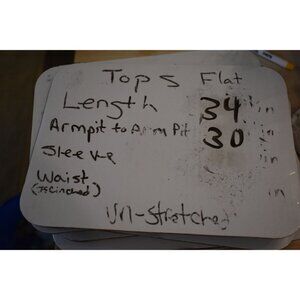 Tops Flat
Length 34 in
Armpit to Arm Pit 30 in
Sleeve in
Waist in
(If Cinched)
Un-stretched